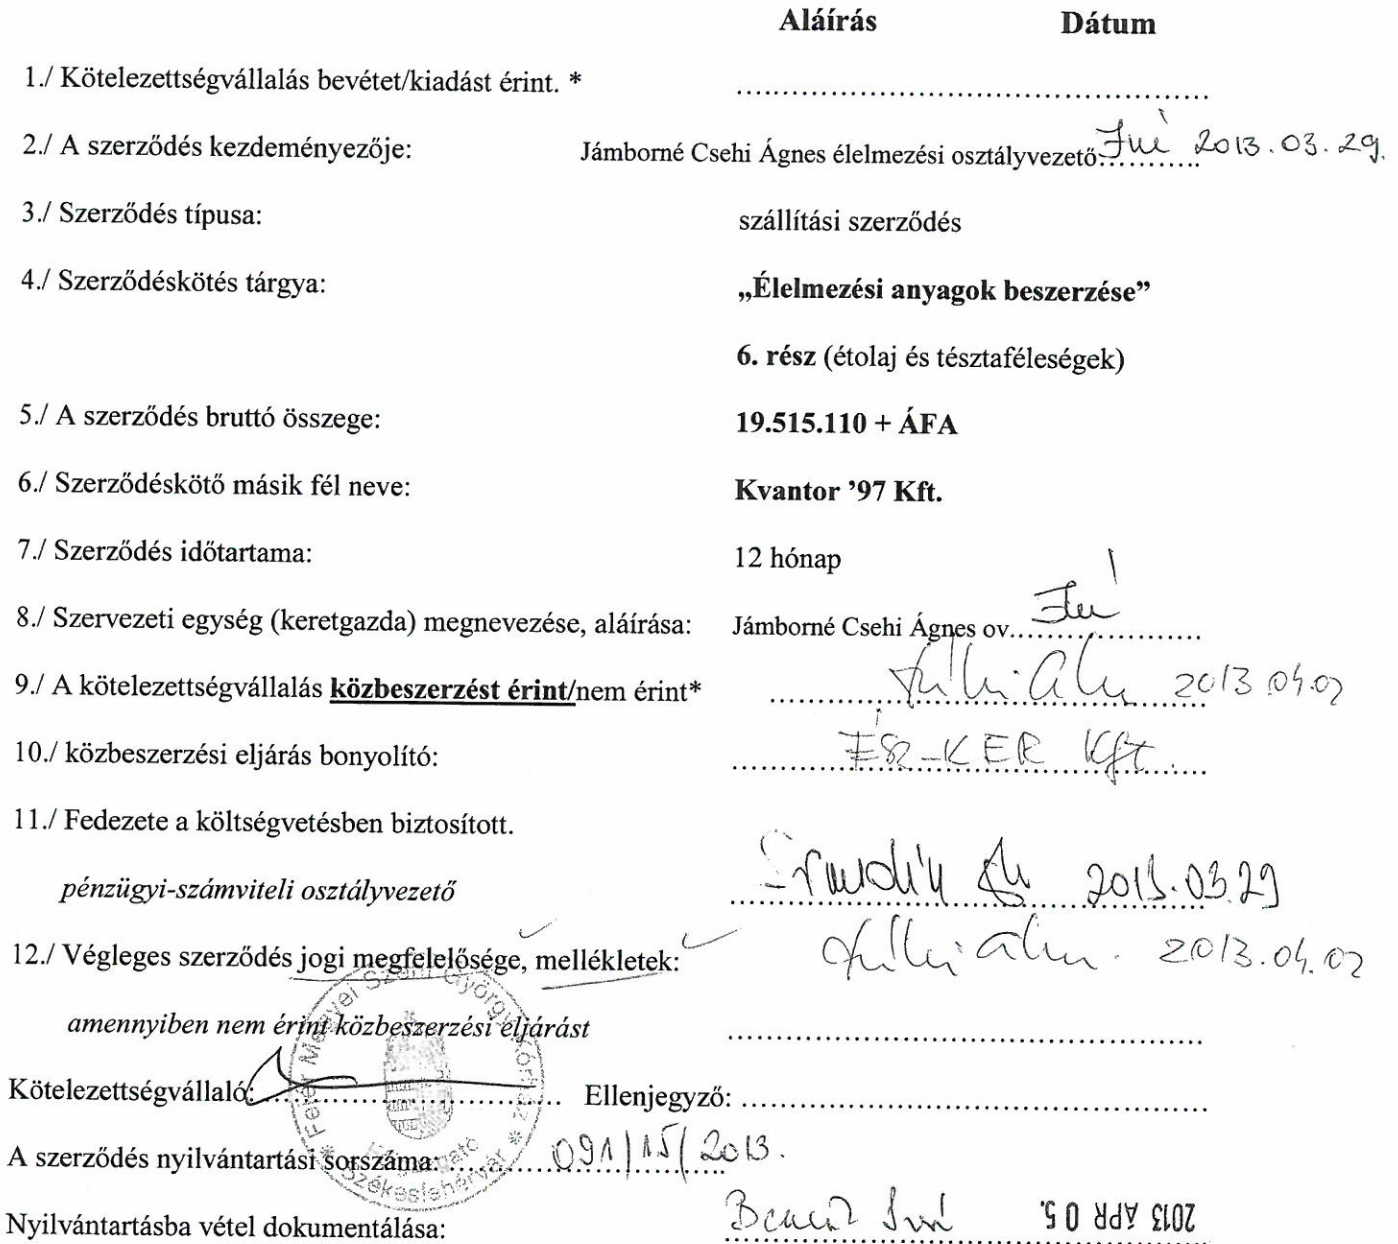 Aláírás Dátum
1./ Kötelezettségvállalás bevétet/kiadást érint. * ..................................................
2./ A szerződés kezdeményezője: Jámborné Csehi Ágnes élelmezési osztályvezető:........... 2013.03.29.
3./ Szerződés típusa: szállítási szerződés
4./ Szerződéskötés tárgya: „Élelmezési anyagok beszerzése”
6. rész (étolaj és tésztaféleségek)
5./ A szerződés bruttó összege: 19.515.110 + ÁFA
6./ Szerződéskötő másik fél neve: Kvantor ’97 Kft.
7./ Szerződés időtartama: 12 hónap
8./ Szervezeti egység (keretgazda) megnevezése, aláírása: Jámborné Csehi Ágnes ov....................
9./ A kötelezettségvállalás közbeszerzést érint/nem érint* 2013.04.02
10./ közbeszerzési eljárás bonyolító: ÉSZ-KER Kft.
11./ Fedezete a költségvetésben biztosított.
pénzügyi-számviteli osztályvezető 2013.03.29
12./ Végleges szerződés jogi megfelelősége, mellékletek: 2013.04.02
amennyiben nem érint közbeszerzési eljárást ..................................................
Fejér Megyei Szent György Kórház * Székesfehérvár *
Kötelezettségvállaló:................................ Ellenjegyző: ..................................................
A szerződés nyilvántartási sorszáma: 091/15/2013.
Nyilvántartásba vétel dokumentálása: 2013 APR 05.